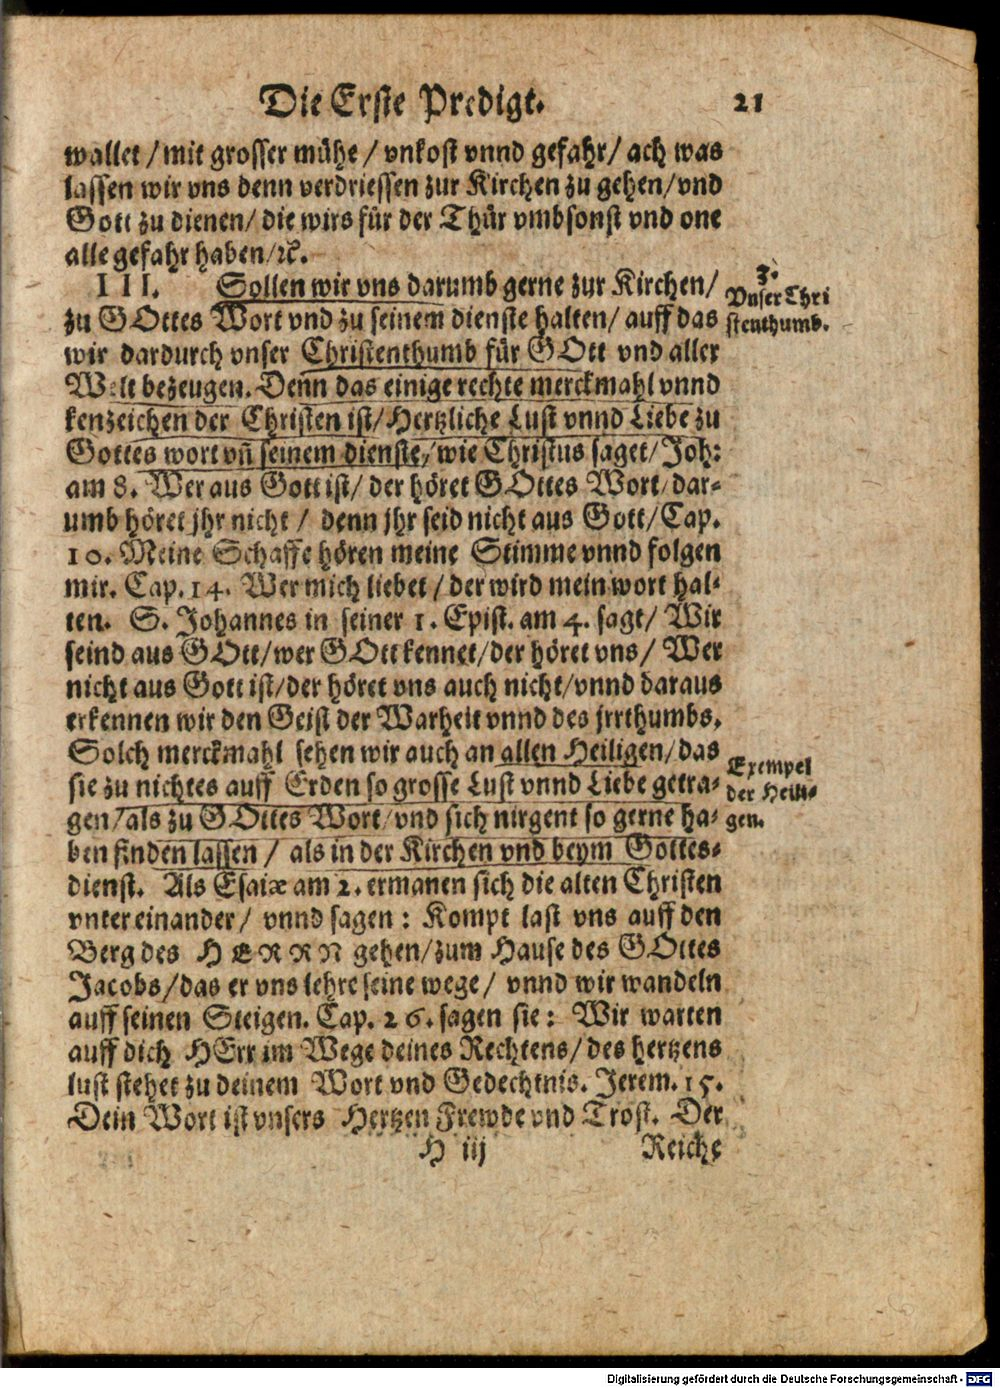 Die Erste Predigt. 21
wallet / mit grosser mühe / vnkost vnnd gefahr / ach was
lassen wir vns denn verdriessen zur Kirchen zu gehen / vnd
Gott zu dienen / die wirs für der Thür vmbsonst vnd one
alle gefahr haben / ꝛc.
III. Sollen wir vns darumb gerne zur Kirchen /
zu GOttes Wort vnd zu seinem dienste halten / auff das
wir dardurch vnser Christenthumb für GOtt vnd aller
Welt bezeugen. Denn das einige rechte merckmahl vnnd
kenzeichen der Christen ist / Hertzliche Lust vnnd Liebe zu
Gottes wort vñ seinem dienste / wie Christus saget / Joh:
am 8. Wer aus Gott ist / der höret GOttes Wort / dar-
umb höret jhr nicht / denn jhr seid nicht aus Gott / Cap.
10. Meine Schaffe hören meine Stimme vnnd folgen
mir. Cap. 14. Wer mich liebet / der wird mein wort hal-
ten. S. Johannes in seiner 1. Epist. am 4. sagt / Wir
seind aus GOtt / wer GOtt kennet / der höret vns / Wer
nicht aus Gott ist / der höret vns auch nicht / vnnd daraus
erkennen wir den Geist der Warheit vnnd des jrrthumbs.
Solch merckmahl sehen wir auch an allen Heiligen / das
sie zu nichtes auff Erden so grosse Lust vnnd Liebe getra-
gen / als zu GOttes Wort / vnd sich nirgent so gerne ha-
ben finden lassen / als in der Kirchen vnd beym Gottes-
dienst. Als Esaiæ am 2. ermanen sich die alten Christen
vntereinander / vnnd sagen : Kompt last vns auff den
Berg des HERRN gehen / zum Hause des GOttes
Jacobs / das er vns lehre seine wege / vnnd wir wandeln
auff seinen Steigen. Cap. 26. sagen sie : Wir warten
auff dich HErr im Wege deines Rechtens / des hertzens
lust stehet zu deinem Wort vnd Gedechtnis. Jerem. 15.
Dein Wort ist vnsers Hertzen Frewde vnd Trost. Der
H iij Reiche
3.
Vnser Chri
stenthumb.
Exempel
der Heili-
gen.
Digitalisierung gefördert durch die Deutsche Forschungsgemeinschaft - DFG